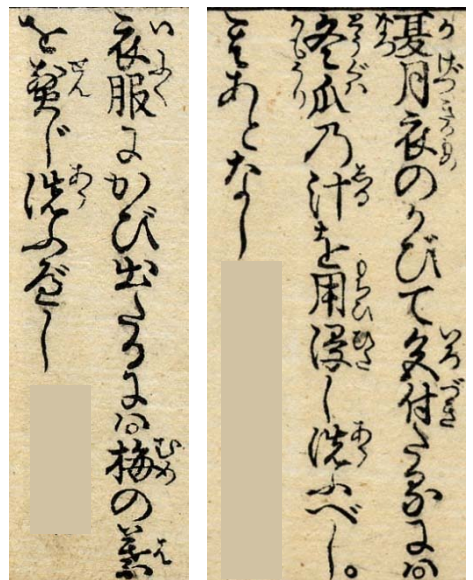 夏月衣のかびて色付たるにハ
冬瓜乃汁を用浸し洗ふべし。
あとなし
衣服にかび出たるにハ梅の葉
を煎じ洗ふべし